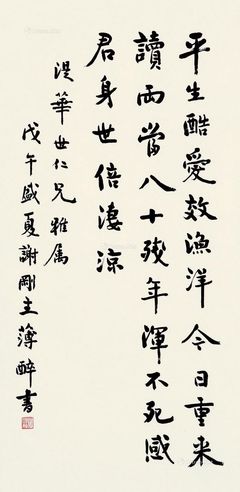 平生酷愛效漁洋今日重來
讀兩當八十殘年渾不死感
君身世倍淒涼
湜華世仁兄雅属
戊午盛夏謝剛主薄醉書